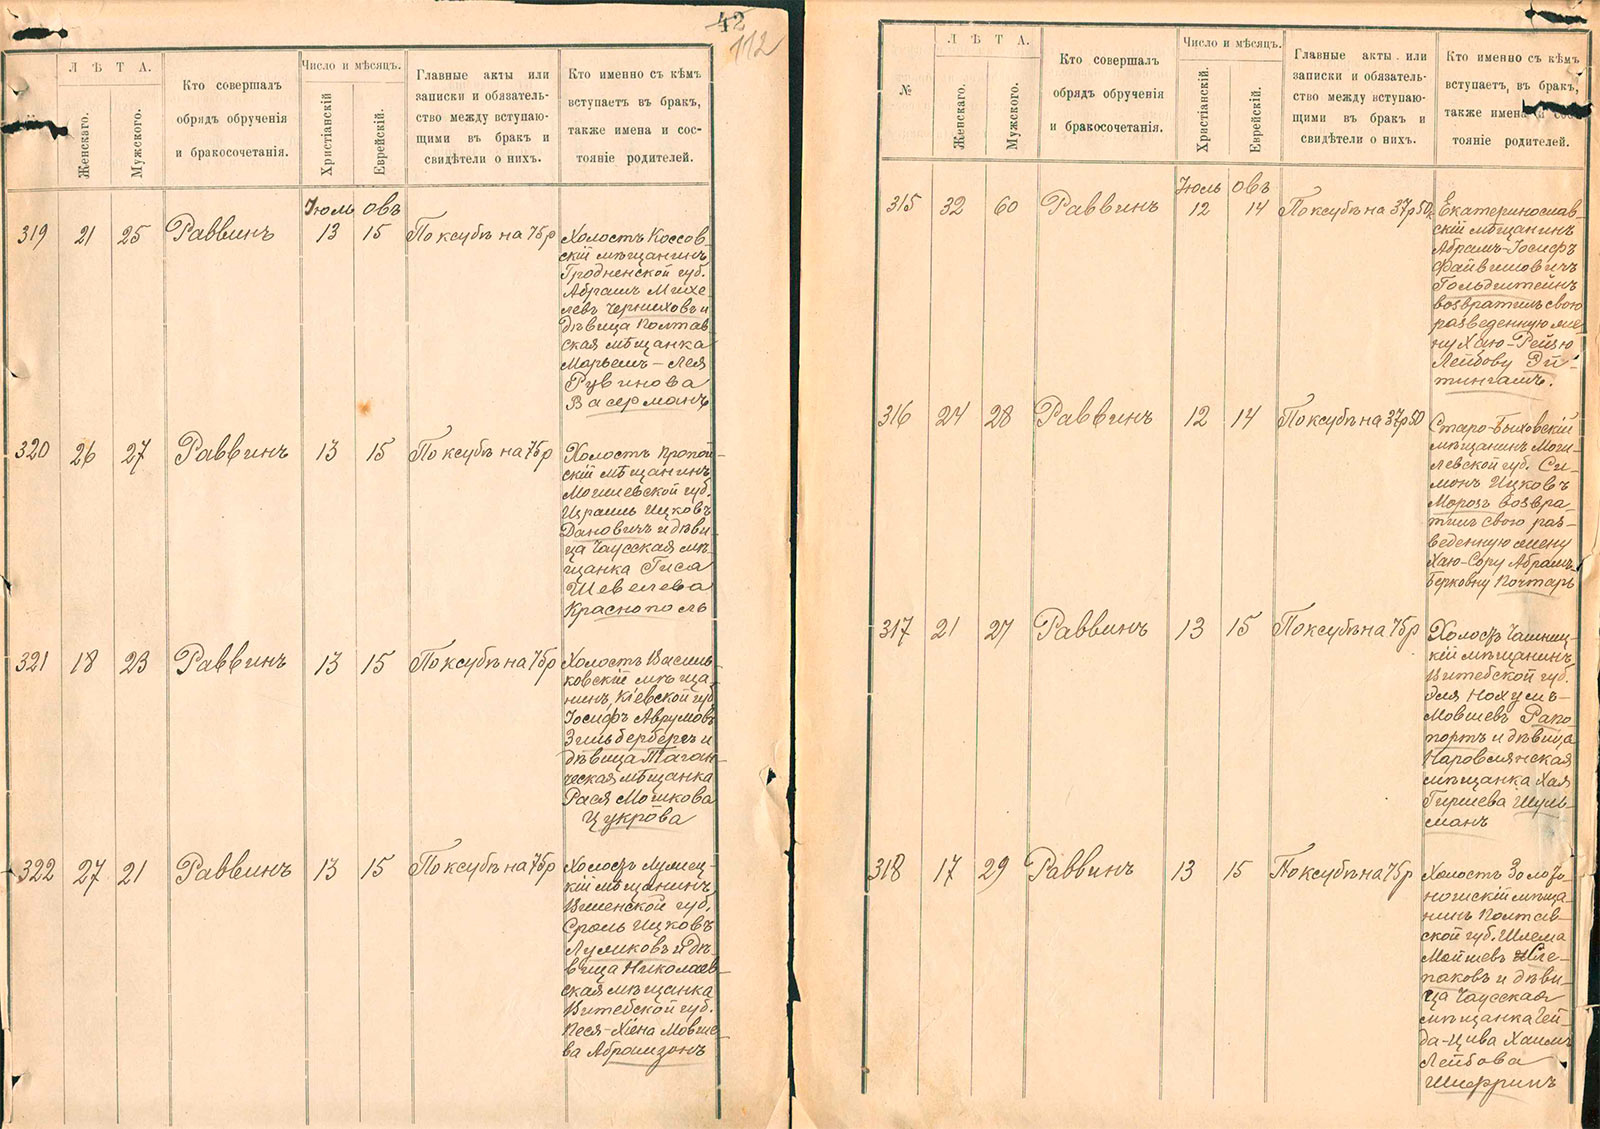 42
112
ЛѢТА.
Женскаго.
Мужского.
Кто совершалъ
обрядъ обрученія
и бракосочетанія.
Число и мѣсяцъ.
Христіанскій
Еврейскій.
Главные акты или
записки и обязатель-
ство между вступаю-
щими въ бракъ и
свидѣтели о нихъ.
Кто именно съ кѣмъ
вступаетъ въ бракъ,
также имена и сос-
тояніе родителей.
Іюль Овъ
319 21 25 Раввинъ 13 15 По ксубѣ на 75 р
Холостъ Коссов-
скій мѣщанинъ
Гродненской губ.
Абрамъ Михе-
левъ Черниховъ и
дѣвица Полтав-
ская мѣщанка
Марьемъ-Лея
Рувинова
Васерманъ
320 26 27 Раввинъ 13 15 По ксубѣ на 75 р
Холостъ Пропой-
скій мѣщанинъ
Могилевской губ.
Израиль Ицковъ
Дановичъ и дѣви-
ца Чаусская мѣ-
щанка Гися
Шевелева
Краснополь
321 18 23 Раввинъ 13 15 По ксубѣ на 75 р
Холостъ Василь-
ковскій мѣща-
нинъ, Кіевской губ.
Іосифъ Аврумовъ
Зильбербергъ и
дѣвица Таган-
ческая мѣщанка
Рася Мошкова
Цукрова
322 27 21 Раввинъ 13 15 По ксубѣ на 75 р
скій мѣщанинъ
Виленской губ.
Сроль Ицковъ
и дѣ-
вица Николаев-
ская мѣщанка
Витебской губ.
Песя-Хіена Мовше-
ва Абрамзонъ
№
ЛѢТА.
Женскаго.
Мужского.
Кто совершалъ
обрядъ обрученія
и бракосочетанія
Число и мѣсяцъ.
Христіанскій.
Еврейскій.
Главные акты или
записки и обязатель-
ство между вступаю-
щими въ бракъ и
свидѣтели о нихъ.
Кто именно съ кѣмъ
вступаетъ въ бракъ,
также имена и сос-
тояніе родителей.
Іюль Овъ
315 32 60 Раввинъ 12 14 По ксубѣ на 37 р 50
Екатеринослав-
скій мѣщанинъ
Абрамъ-Іосифъ
Файвишовичъ
Гольдштейнъ
возвратилъ свою
разведенную же-
ну Хаю-Рейзю
Лейбову Эй-
тингамъ.
316 24 28 Раввинъ 12 14 По ксубѣ на 37 р 50
Старо-Быховскій
мѣщанинъ Моги-
левской губ. Си-
монъ Ицковъ
Морозъ возвра-
тилъ свою раз-
веденную жену
Хаю-Сору Абрамъ-
Берковну Почтарь
317 21 27 Раввинъ 13 15 По ксубѣ на 75 р
Холостъ Чашниц-
кій мѣщанинъ
Витебской губ.
Эля Нохумъ-
Мовшевъ Рапо-
портъ и дѣвица
Наровлянская
мѣщанка Хая
Гиршева Шуль-
манъ
318 17 29 Раввинъ 13 15 По ксубѣ на 75 р
Холостъ Золото-
ношскій мѣща-
нинъ Полтав-
ской губ. Шлема
Мойшевъ Шле-
паковъ и дѣви-
ца Чаусская
мѣщанка Гей-
да-Цива Хаимъ
Лейбова
Шифринъ